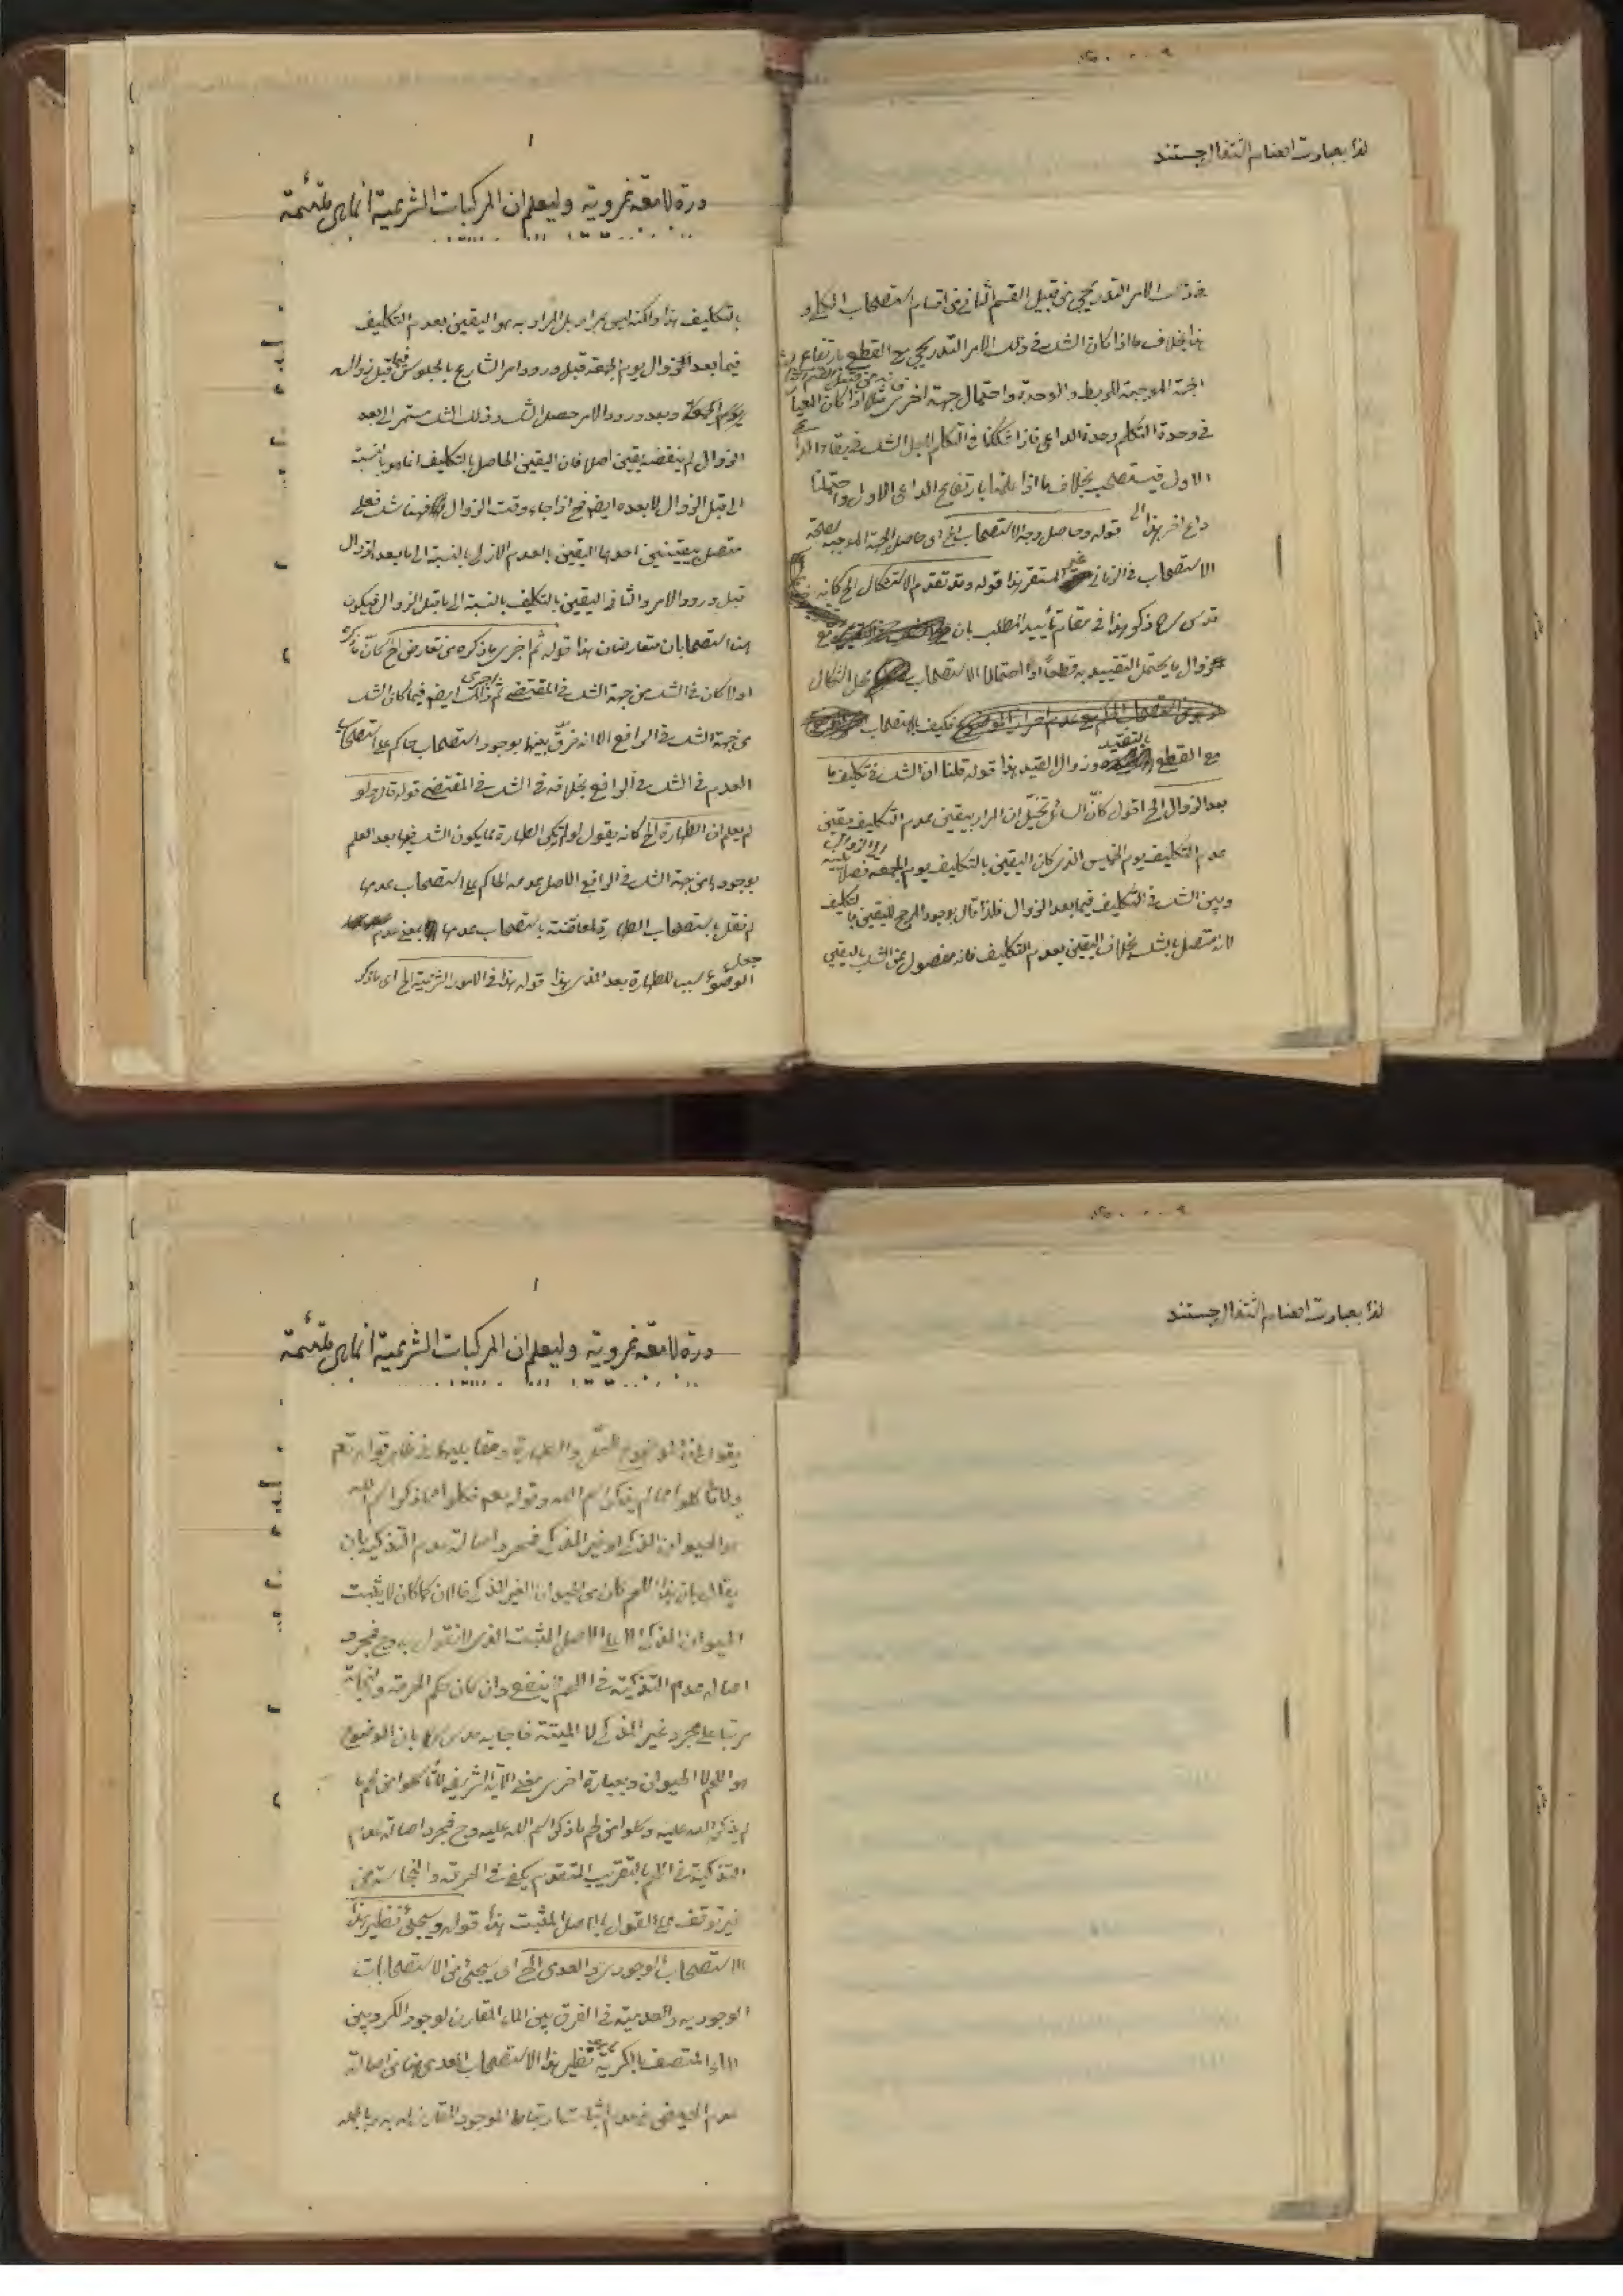 لذا بعبارت اعتنام الثتغال جستند
في ذلك الامر التدريجي من قبيل القسم الثاني من اقسام استصحاب الكلي و
هذا بخلاف ما اذا كان الشك في ذلك الامر التدريجي مع القطع بارتفاع
الجهة الموجبة للربط والوحدة واحتمال جهة اخرى مثلا اذا كان
في وحدة التكلم وحدة الداعى فاذا شككنا في التكلم لاجل الشك في بقاء
الاول فيستصحب بخلاف ما اذا علمنا بارتفاع الداعى الاول واحتملنا
داع اخر هذا قوله وحاصل وجه الاستصحاب الخ اى حاصل الجهة الموجبة لصحة
الاستصحاب في الزمانى غير المستقر هذا قوله وقد تقدم الاستشكال الخ كانه
قدس سره ذكر هذا في مقام تأييد المطلب بان مع
زوال ما يحتمل التقييد به قطعا او احتمالا الاستصحاب محل اشكال
فكيف بالاستصحاب
مع القطع بالتقييد وزوال القيد هذا قوله قلنا ان الشك في تكليف ما
بعد الزوال الخ اقول كأنّ السائل تخيّل ان المراد بيقين عدم التكليف يقين
عدم التكليف يوم الخميس الذى كان اليقين بالتكليف يوم الجمعه فصلا بينه
وبين الشك في التكليف فيما بعد الزوال فلذا قال بوجود المرجح لليقين بالتكليف
لانه متصل بالشك بخلاف اليقين بعدم التكليف فانه مفصول عن الشك باليقين
١
درة لامعة غروية وليعلم ان المركبات الشرعية انما هى ملتئمة
بالتكليف هذا ولكنه ليس بمراد بل المراد به هو اليقين بعدم التكليف
فيما بعد الزوال يوم الجمعة قبل ورود امر الشارع بالجلوس فيما قبل زوال
يوم الجمعة وبعد ورود الامر حصل الشك وذلك الشك مستمر الى بعد
الزوال لم ينقضه يقين اصلا فان اليقين الحاصل بالتكليف انما هو بالنسبة
الى قبل الزوال لا بعده ايضا فح اذا جاء وقت الزوال فهنا شك فعلى
متصل بيقينين احدهما اليقين بالعدم الازلى بالنسبة الى ما بعد الزوال
قبل ورود الامر والثانى اليقين بالتكليف بالنسبة الى ما قبل الزوال فيكون
هنا استصحابان متعارضان هذا قوله ثم اجرى ما ذكره من تعارض الخ كان ما ذكره
اولا كان في الشك من جهة الشك في المقتضى ثم اجرى ذلك ايضا فيما كان الشك
من جهة الشك في الرافع الا انه فرق بينهما بوجود استصحاب حاكم على استصحاب
العدم في الشك في الرافع بخلافه في الشك في المقتضى قوله قال ولو
لم يعلم ان الطهارة الخ كانه يقول لو لم تكن الطهارة مما يكون الشك فيها بعد العلم
بوجودها من جهة الشك في الرافع الاصل عدمه الحاكم على استصحاب عدمها
لم نقل باستصحاب الطهارة لمعارضته باستصحاب عدمها بمعنى عدم
جعل الوضوء سببا للطهارة بعد المذى هذا قوله هذا في الامور الشرعية الخ اى ما ذكر
لذا بعبارت اعتنام الثتغال جستند
١
درة لامعة غروية وليعلم ان المركبات الشرعية انما هى ملتئمة
يقول لما كان موضوع الحل والطهارة ومقابليهما في ظاهر قوله تعم
ولا تأكلوا مما لم يذكر اسم الله وقوله تعم فكلوا مما ذكر اسم الله
هو الحيوان المذكى او غير المذكى فمجرد اصالة عدم التذكية بان
يقال بان هذا اللحم كان من الحيوان الغير المذكى فالان كما كان لا يثبت
الحيوان المذكى الا على الاصل المثبت الذى لا نقول به وح فمجرد
اصالة عدم التذكية في اللحم لا ينفع وان كان حكم الحرمة والنجاسة
مرتبا على مجرد غير المذكى لا الميتة فاجابه قدس سره بان الموضوع
هو اللحم لا الحيوان وبعبارة اخرى معنى الآية الشريفة لا تأكلوا من لحم ما
لم يذكر اسم الله عليه وكلوا من لحم ما ذكر اسم الله عليه وح فمجرد اصالة عدم
التذكية في اللحم بالتقريب المتقدم يكفى في الحرمة والنجاسة من
غير توقف على القول بالاصل المثبت هذا قوله وسيجئ نظير هذا
الاستصحاب الوجودى والعدمى الخ اى سيجئ من الاستصحابات
الوجودية والعدمية في الفرق بين الماء المقارن لوجود الكر وبين
الماء المتصف بالكرية نظير هذا الاستصحاب العدمى هنا من اصالة
عدم الحيض في عدم اثبات ارتباط الموجود المقارن له به وبالجملة